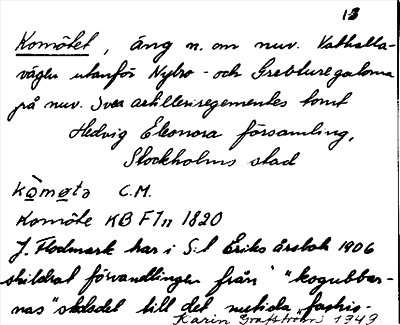 13
Komötet, äng n. om nuv. Valhalla-
vägen utanför Nybro- och Grevturegatorna
på nuv. Svea artilleriregementes tomt
Hedvig Eleonora församling,
Stockholms stad
kòmøtə C.M.
Komöte KB F1n 1820
J. Flodmark har i S:t Eriks årsbok 1906
skildrat förvandlingen från "kogubbar-
nas" skådsel till det nutida "fashio-
Karin Grafström 1949